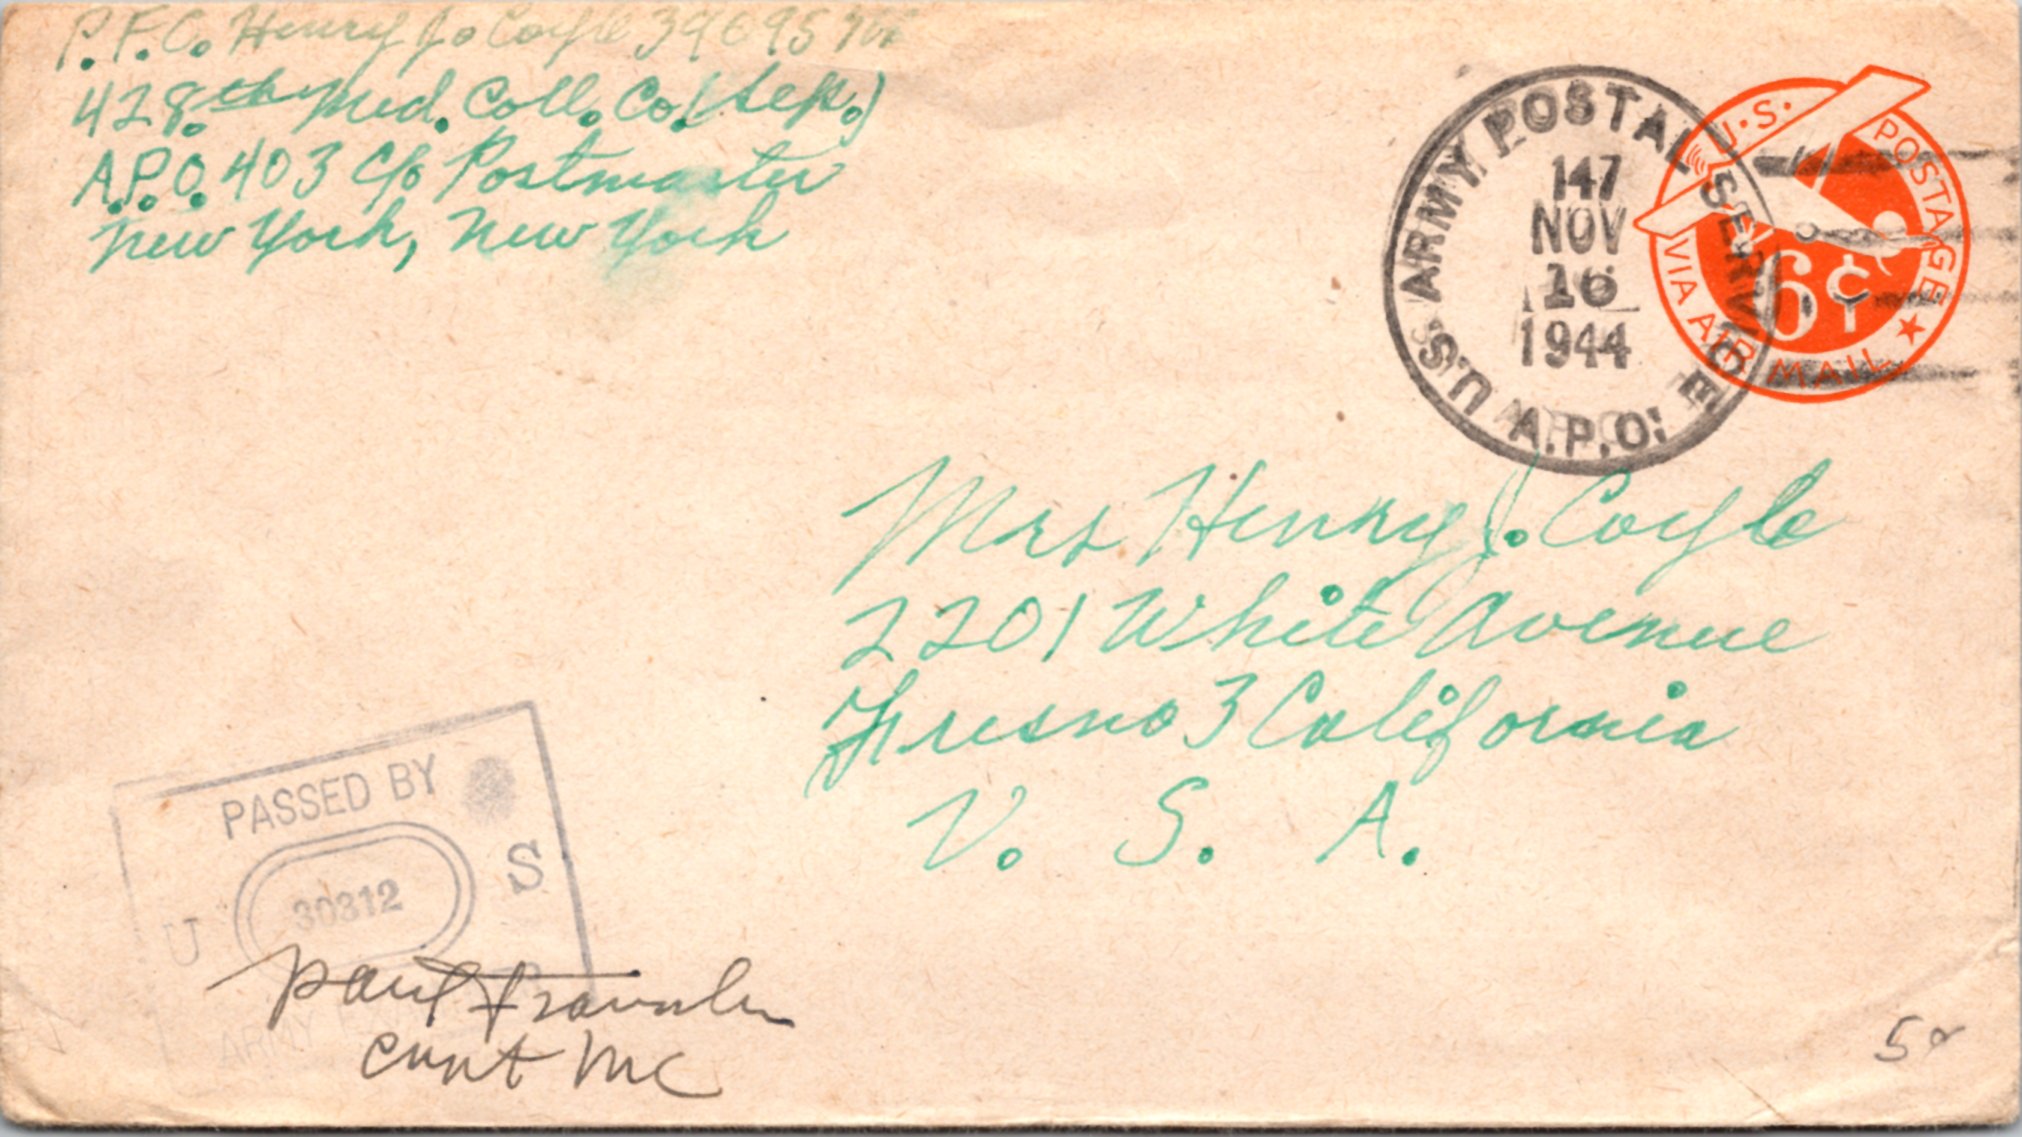 P.F.C. Henry J. Coyle
428.th Med. Coll. Co. (Sep.)
A.P.O. 403 C/o Postmaster
New York, New York
U.S. ARMY POSTAL SERVICE
147
NOV
16
1944
A.P.O.
U.S. POSTAGE
6¢
VIA AIR MAIL
Mrs Henry J. Coyle
2201 White Avenue
Fresno 3 California
U. S. A.
PASSED BY
U S
30312
ARMY
Paul
MC